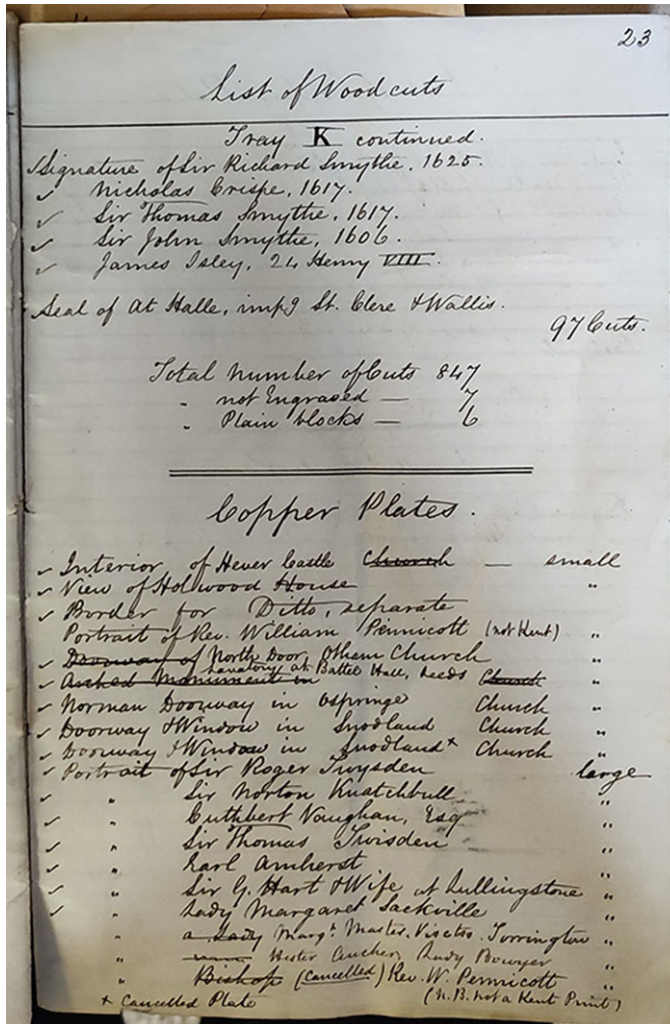 23
List of Woodcuts
Tray K continued.
Signature of Sir Richard Smythe, 1625.
✓ Nicholas Crispe, 1617.
✓ Sir Thomas Smythe, 1617.
✓ Sir John Smythe, 1606.
✓ James Isley, 24 Henry VIII.
Seal of At Halle, impg St. Clere & Wallis.
97 Cuts.
Total number of Cuts 847
" not Engraved — 7
" Plain blocks — 6
Copper Plates.
✓ Interior of Hever Castle Church — small
✓ View of Holwood House "
✓ Border for Ditto, separate
Portrait of Rev. William Pennicott (not Kent) "
✓ Doorway of North Door, Otham Church "
✓ Arched Monument in Lavatory at Battel Hall, Leeds Church "
✓ Norman Doorway in Ospringe Church "
✓ Doorway & Window in Snodland Church "
✓ Doorway & Window in Snodland + Church "
✓ Portrait of Sir Roger Twysden large
✓ " Sir Norton Knatchbull "
✓ " Cuthbert Vaughan, Esq "
✓ " Sir Thomas Twisden "
✓ " Earl Amherst "
✓ " Sir G. Hart & Wife at Lullingstone "
✓ " Lady Margaret Sackville "
" a Lady Margt. Master. Visctss. Torrington "
" Hester Aucher, Lady Bowyer "
" Bishop (Cancelled) Rev. W. Pennicott "
+ Cancelled Plate (N.B. not a Kent Print)